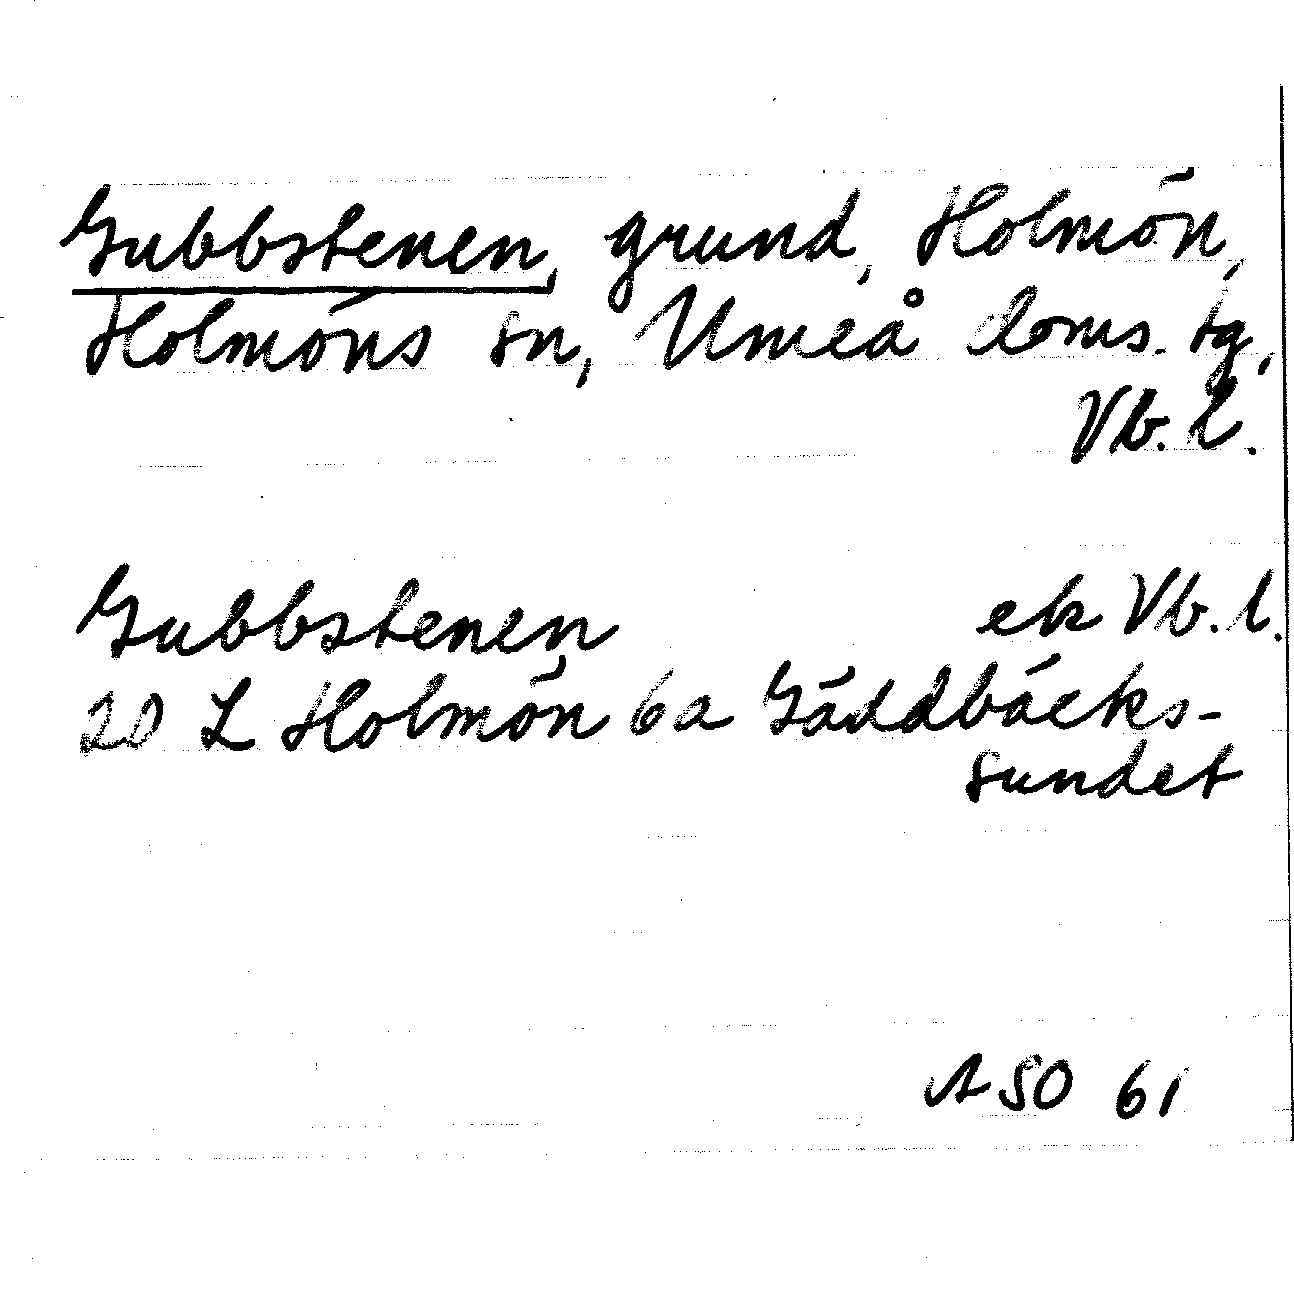 Gubbstenen, grund, Holmön,
Holmöns sn, Umeå doms. tg,
Vb. l.
Gubbstenen ek Vb. l.
20 L Holmön 6a Gäddbäcks-
sundet
ASO 61